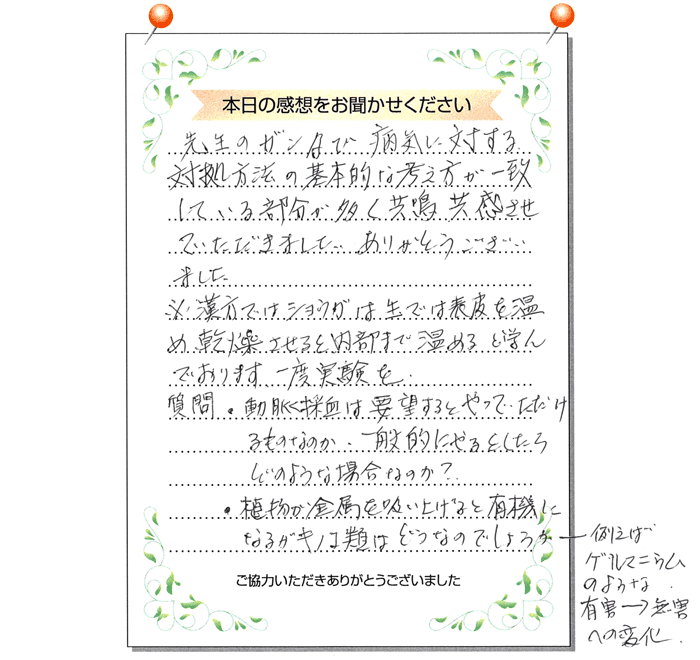 本日の感想をお聞かせください
先生のガン及び病気に対する
対処方法の基本的な考え方が一致
している部分が多く共鳴共感させ
ていただきました。ありがとうござい
ました
※漢方ではショウガは生では表皮を温
め乾燥させると内部まで温めると学ん
でおります 一度実験を.
質問・動脈採血は要望するとやっていただけ
るものなのか、一般的にやるとしたら
どのような場合なのか?
・植物が金属を吸い上げると有機に
なるがキノコ類はどうなのでしょうか
例えば
ゲルマニウム
のような.
有害→無害
への変化.
ご協力いただきありがとうございました